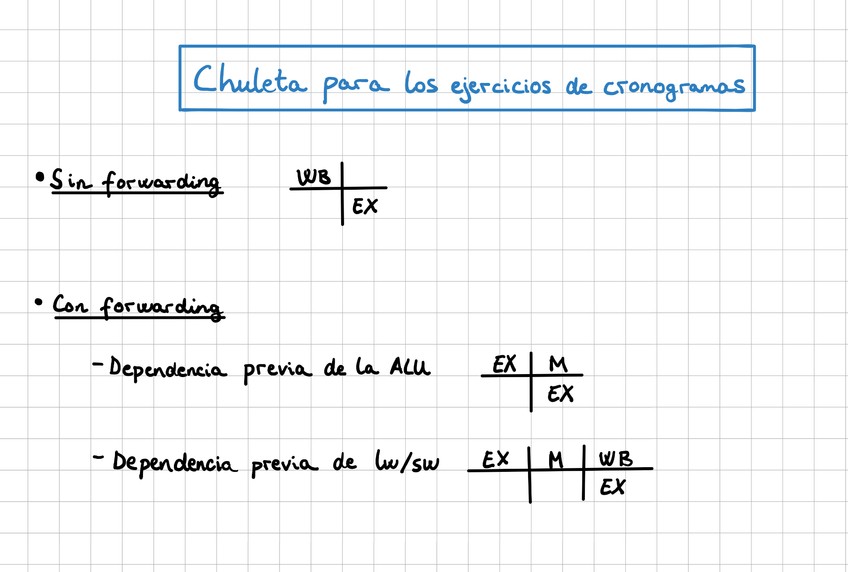 Chuleta para los ejercicios de cronogramas
• Sin forwarding WB
EX
• Con forwarding
- Dependencia previa de la ALU EX M
EX
- Dependencia previa de lw/sw EX M WB
EX